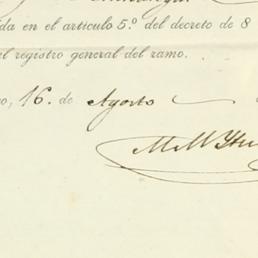 ida en el artículo 5.º del decreto de 8
l registro general del ramo.
o, 16. de Agosto